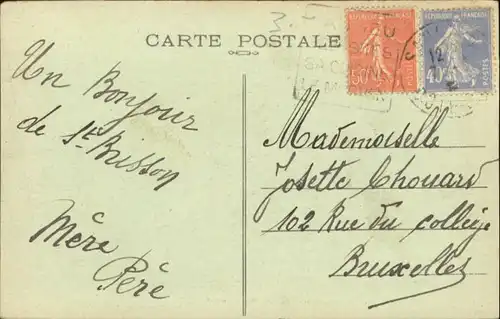 CARTE POSTALE
REPUBLIQUE FRANÇAISE
50c
POSTES
REPUBLIQUE FRANÇAISE
40c
Un Bonjour
de St Brisson
Mère
Péré
Mademoiselle
Josette Chouard
102 Rue du collège
Bruxelles